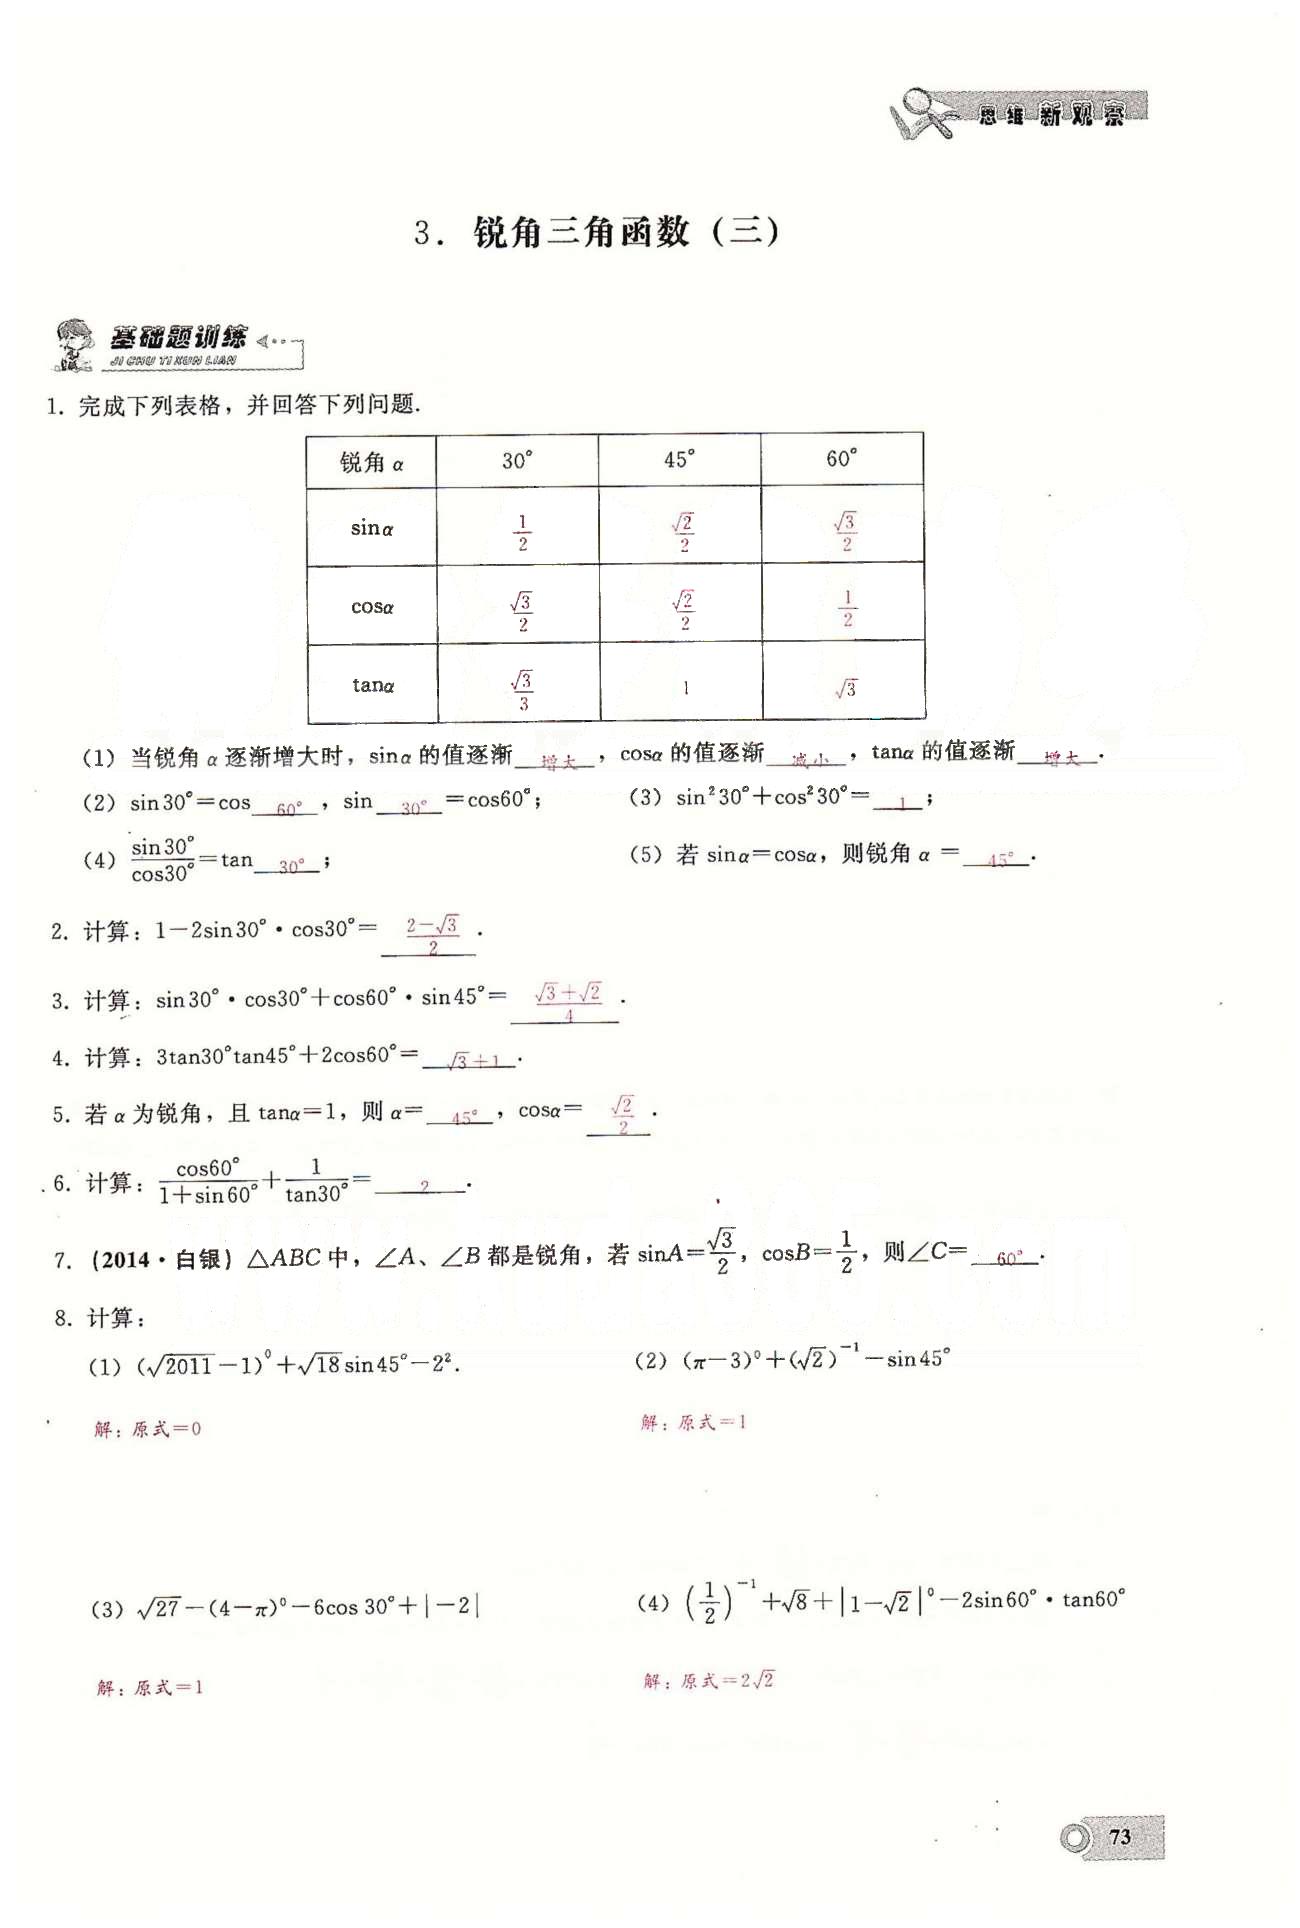 思维新观察
3. 锐角三角函数（三）
基础题训练
JI CHU TI XUN LIAN
1. 完成下列表格，并回答下列问题.
锐角 α 30° 45° 60°
sinα 1/2 √2/2 √3/2
cosα √3/2 √2/2 1/2
tanα √3/3 1 √3
(1) 当锐角 α 逐渐增大时，sinα 的值逐渐 增大 ，cosα 的值逐渐 减小 ，tanα 的值逐渐 增大 .
(2) sin30°=cos 60° ，sin 30° =cos60°； (3) sin²30°+cos²30°= 1 ；
(4) sin30°/cos30°=tan 30° ； (5) 若 sinα=cosα，则锐角 α = 45° .
2. 计算：1−2sin30°·cos30°= (2−√3)/2 .
3. 计算：sin30°·cos30°+cos60°·sin45°= (√3+√2)/4 .
4. 计算：3tan30°tan45°+2cos60°= √3+1 .
5. 若 α 为锐角，且 tanα=1，则 α= 45° ，cosα= √2/2 .
6. 计算：cos60°/(1+sin60°)+1/tan30°= 2 .
7. (2014·白银) △ABC 中，∠A、∠B 都是锐角，若 sinA=√3/2，cosB=1/2，则∠C= 60° .
8. 计算：
(1) (√2011−1)⁰+√18sin45°−2². (2) (π−3)⁰+(√2)⁻¹−sin45°
解：原式=0 解：原式=1
(3) √27−(4−π)⁰−6cos 30°+|−2| (4) (1/2)⁻¹+√8+|1−√2|⁰−2sin60°·tan60°
解：原式=1 解：原式=2√2
73